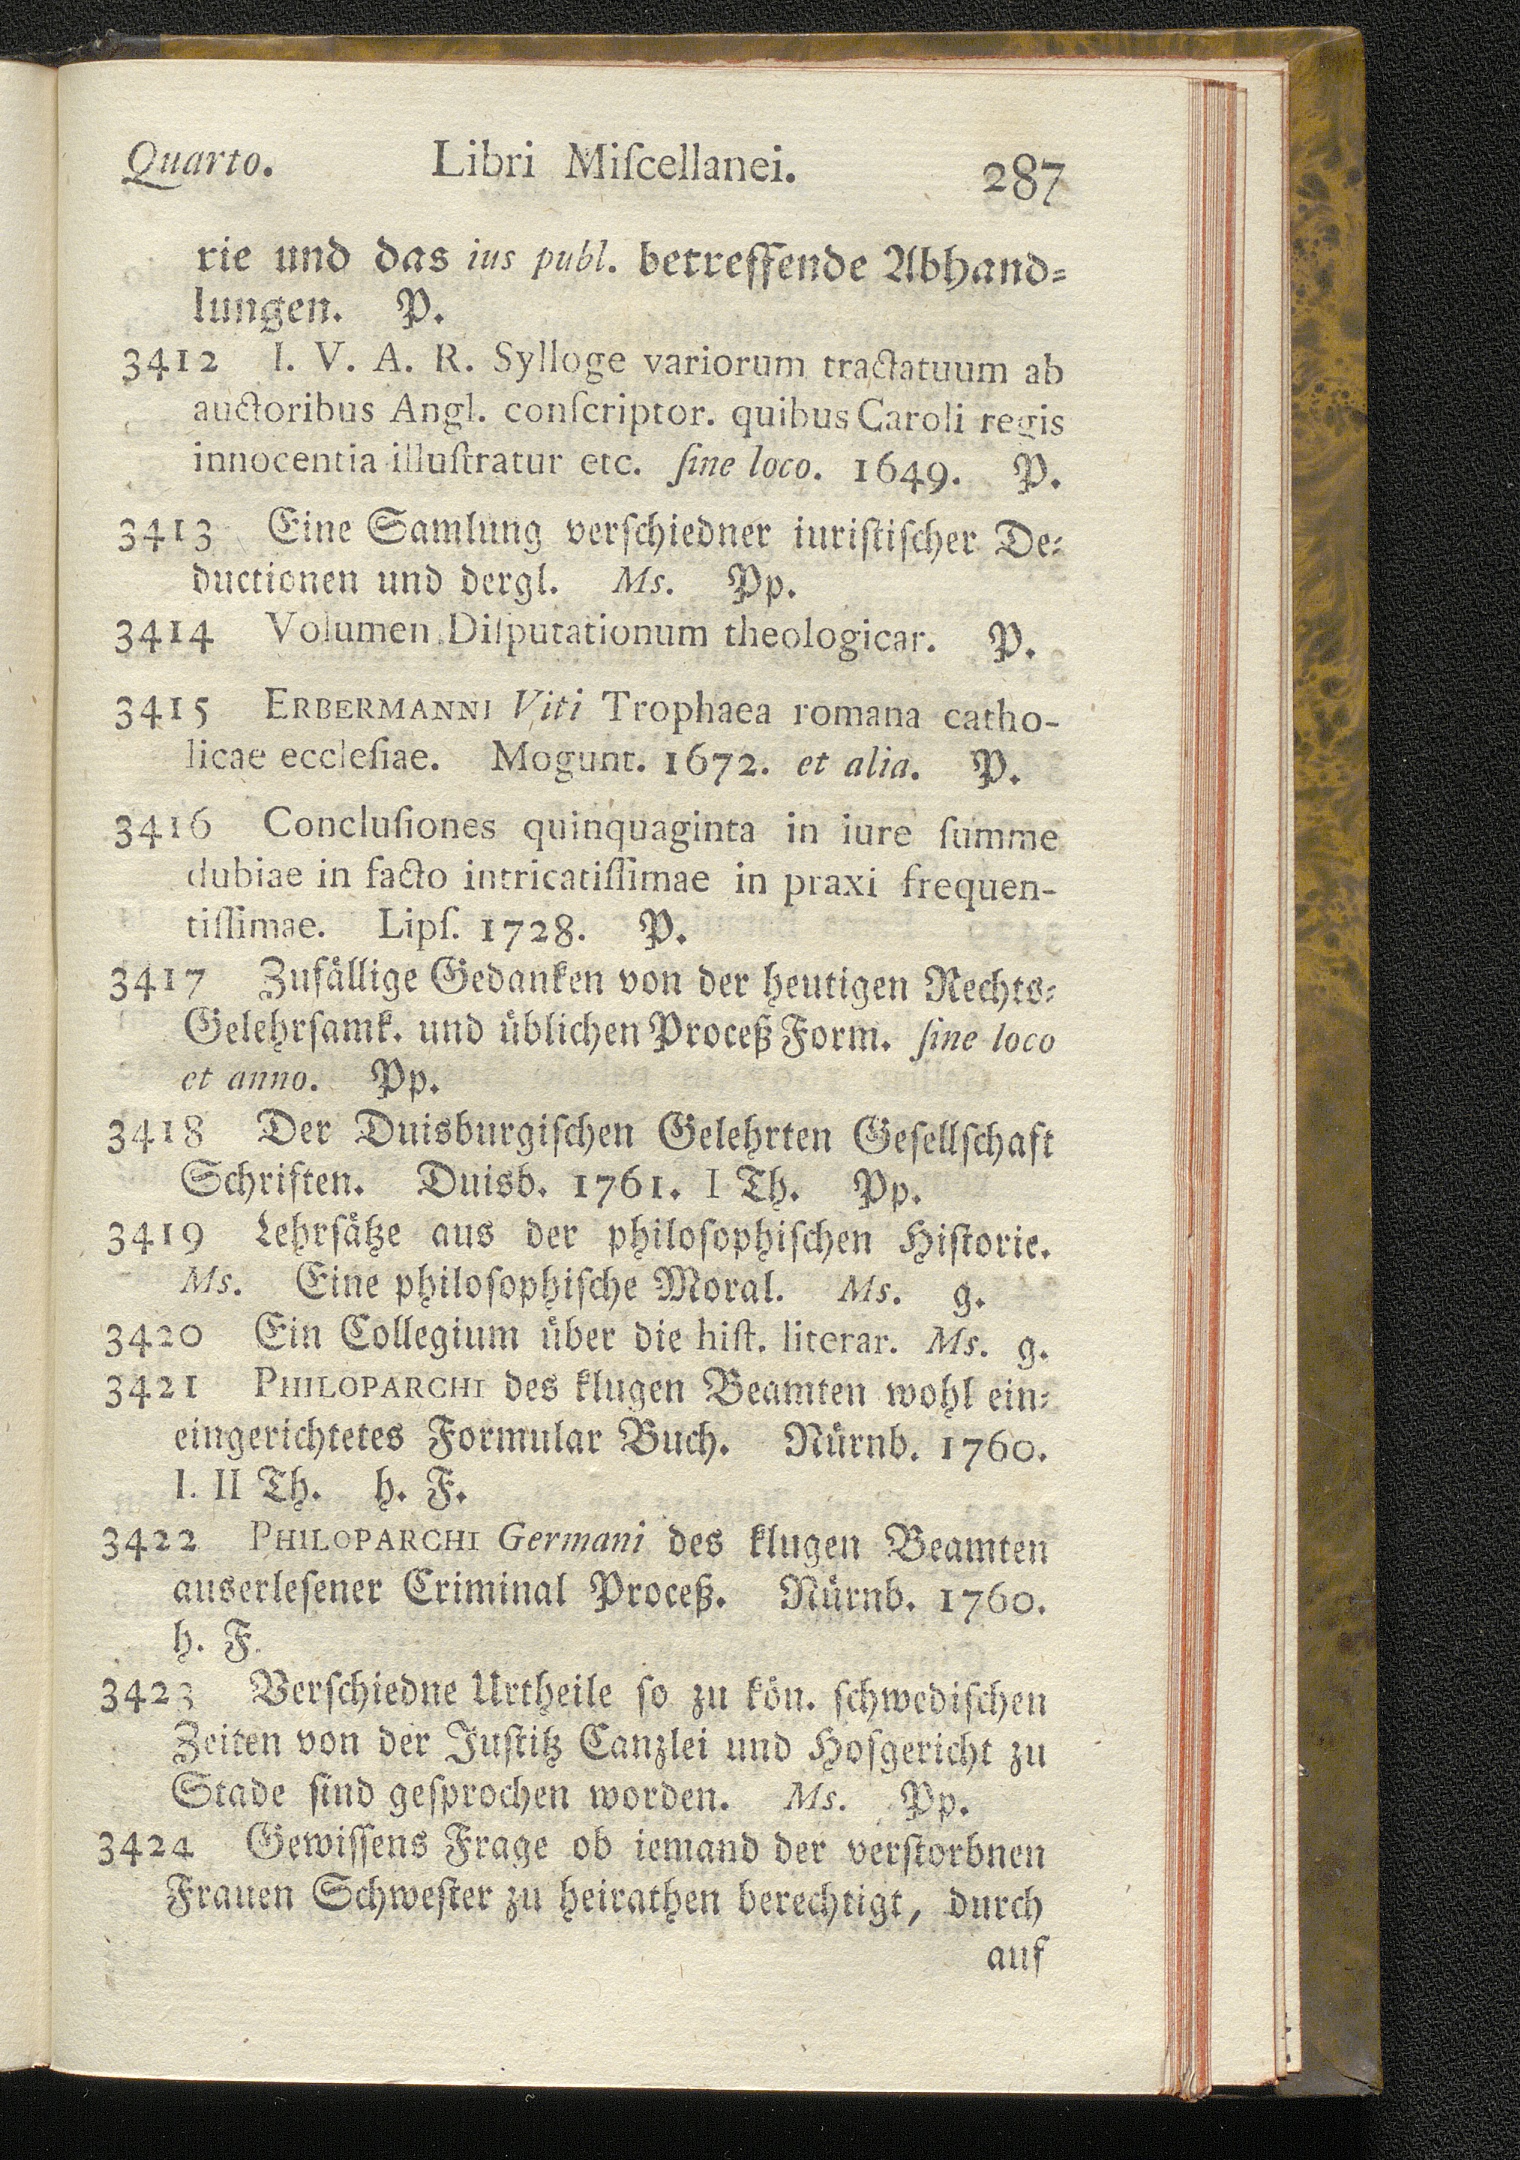 Quarto. Libri Miſcellanei. 287
rie und das ius publ. betreffende Abhand⸗
lungen. P.
3412 I. V. A. R. Sylloge variorum tractatuum ab
auctoribus Angl. conſcriptor. quibus Caroli regis
innocentia illuſtratur etc. ſine loco. 1649. P.
3413 Eine Samlung verſchiedner iuriſtiſcher De⸗
ductionen und dergl. Ms. Pp.
3414 Volumen Diſputationum theologicar. P.
3415 ERBERMANNI Viti Trophaea romana catho-
licae eccleſiae. Mogunt. 1672. et alia. P.
3416 Concluſiones quinquaginta in iure ſumme
dubiae in facto intricatiſſimae in praxi frequen-
tiſſimae. Lipſ. 1728. P.
3417 Zufällige Gedanken von der heutigen Rechts⸗
Gelehrſamk. und üblichen Proceß Form. ſine loco
et anno. Pp.
3418 Der Duisburgiſchen Gelehrten Geſellſchaft
Schriften. Duisb. 1761. I Th. Pp.
3419 Lehrſätze aus der philoſophiſchen Hiſtorie.
Ms. Eine philoſophiſche Moral. Ms. g.
3420 Ein Collegium über die hiſt. literar. Ms. g.
3421 PHILOPARCHI des klugen Beamten wohl ein⸗
eingerichtetes Formular Buch. Nürnb. 1760.
I. II Th. h. F.
3422 PHILOPARCHI Germani des klugen Beamten
auserleſener Criminal Proceß. Nürnb. 1760.
h. F.
3423 Verſchiedne Urtheile ſo zu kön. ſchwediſchen
Zeiten von der Juſtitz Canzlei und Hofgericht zu
Stade ſind geſprochen worden. Ms. Pp.
3424 Gewiſſens Frage ob iemand der verſtorbnen
Frauen Schweſter zu heirathen berechtigt, durch
auf